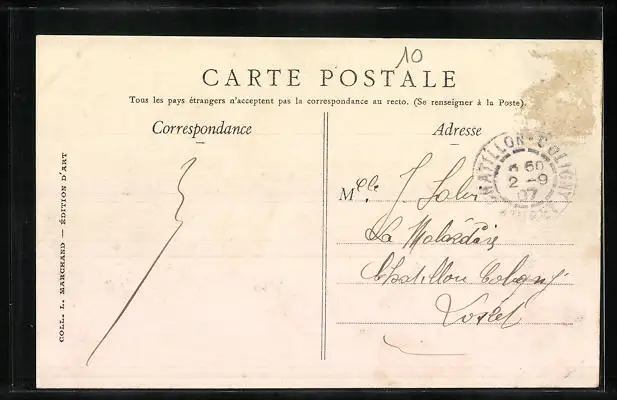 10
CARTE POSTALE
Tous les pays étrangers n'acceptent pas la correspondance au recto. (Se renseigner à la Poste).
Correspondance
Adresse
COLL. L. MARCHAND — ÉDITION D'ART
CHATILLON-COLIGNY
2 -9
07
LOIRET
Mlle J.
La
Chatillon Coligny
Loiret